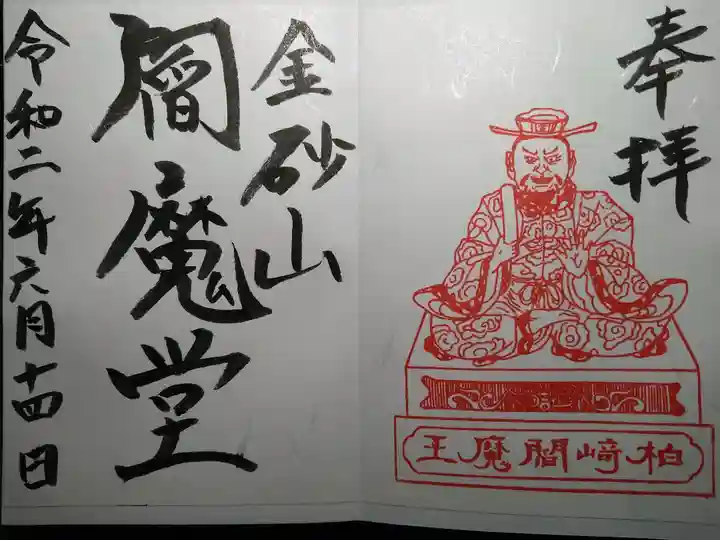 奉拝
柏崎閻魔王
金砂山
閻魔堂
令和二年六月十四日